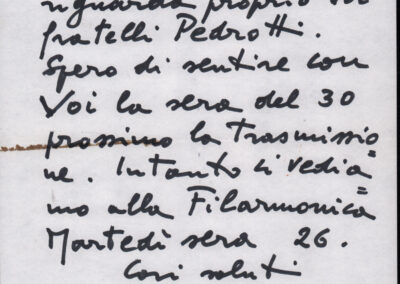 riguarda proprio voi
fratelli Pedrotti.
Spero di sentire con
Voi la sera del 30
prossimo la Trasmissio=
ne. Intanto ci vedia=
mo alla Filarmonica
Martedì sera 26.
Cari saluti